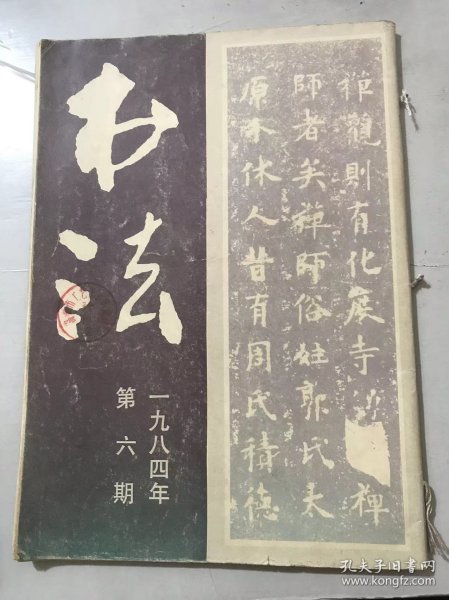 书法
一九八四年
第六期
禅觀則有化度寺 禪
師者矣禪師俗姓郭氏太
原介休人昔有周氏積德
孔夫子旧书网
www.kongfz.com